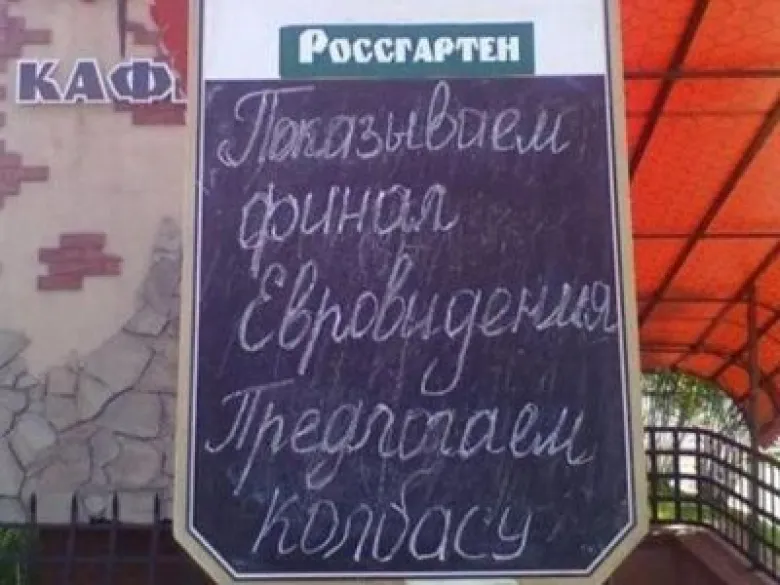 КАФ
РОССГАРТЕН
Показываем
финал
Евровидения
Предлогаем
колбасу